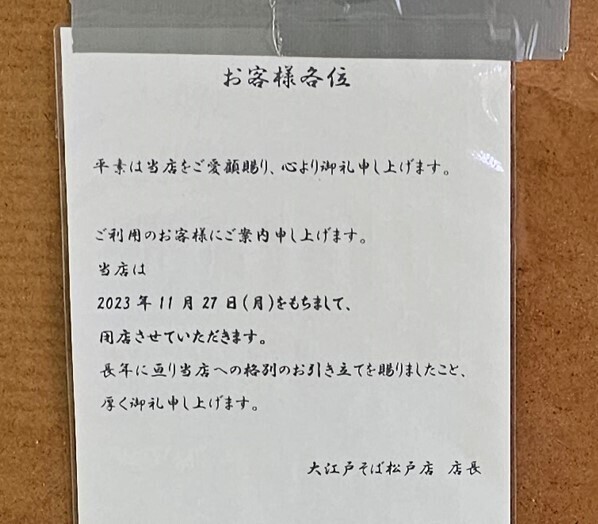 お客様各位
平素は当店をご愛顧賜り、心より御礼申し上げます。
ご利用のお客様にご案内申し上げます。
当店は
2023年11月27日(月)をもちまして、
閉店させていただきます。
長年に亘り当店への格別のお引き立てを賜りましたこと、
厚く御礼申し上げます。
大江戸そば松戸店 店長